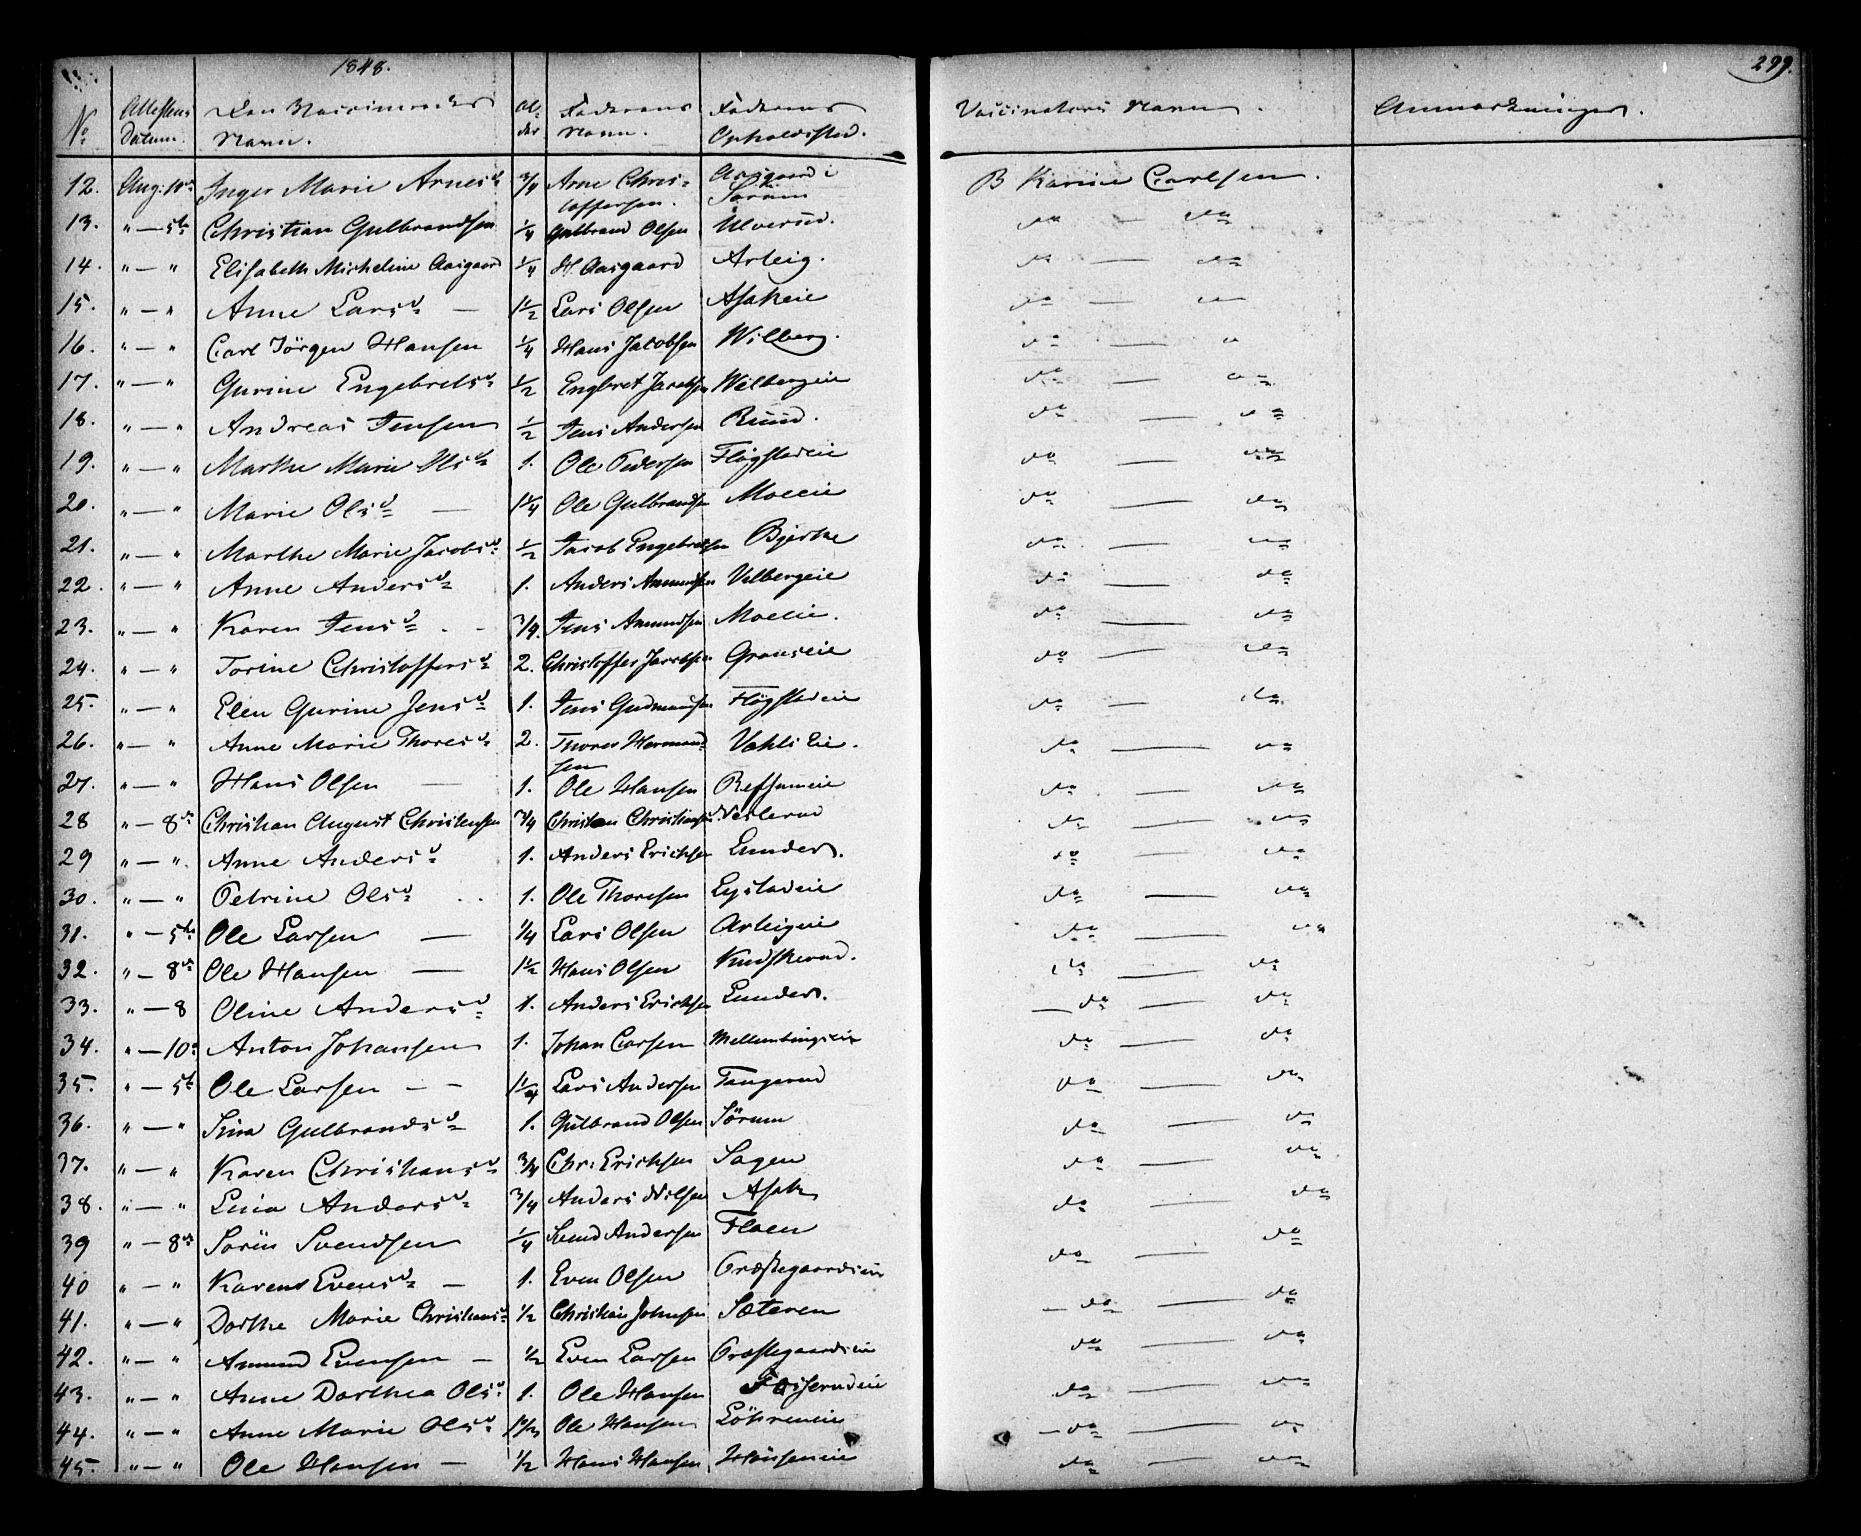 1848.
299.
No Attestens Datum. Den Vaccineredes Navn. Alder Faderens Navn. Faderens Opholdssted. Vaccinators Navn. Anmærkninger.
12. Aug: 10de Inger Marie Arnesd 3/4 Arne Christoffersen. Aasgaard i Sørum B Karine Carlsen.
13. " — 5te Christian Gulbrandsen 1/4 Gulbrand Olsen Ulverud. do — do
14. " — " Elisabeth Micheline Aasgaard 1/4 H. Aasgaard Arteig. do — do
15. " — " Anne Larsd — 1 1/2 Lars Olsen Asakeie do — do
16. " — " Carl Jörgen Hansen 1/4 Hans Jacobsen Wilberg. do — do
17. " — " Gurine Engebretsd 1/2 Engbret Jacobsen Wilbergeie do — do
18. " — " Andreas Jensen 1/2 Jens Andersen Ruud. do — do
19. " — " Marthe Marie Olsd 1. Ole Pedersen Flögstadeie do — do
20. " — " Marie Olsd — 1 1/4 Ole Gulbrandsen Moeeie do — do
21. " — " Marthe Marie Jacobsd 1/2 Jacob Engebretsen Bjerke do — do
22. " — " Anne Andersd 1. Anders Amundsen Velbergeie do — do
23. " — " Karen Jensd 3/4. Jens Amundsen Moeeie. do — do
24. " — " Torine Christoffersd 2. Christoffer Jacobsen Grønseie do — do
25. " — " Elen Gurine Jensd 1. Jens Gudmundsen Flögstadeie do — do
26. " — " Anne Marie Thoresd 2. Thores Hermandsen Vahls Eie. do — do
27. " — " Hans Olsen — 1. Ole Hansen Refsumeie do — do
28 " — 8de Christian August Christensen 3/4 Christian Christiansen Nesterud do — do
29 " — " Anne Andersd 1. Anders Erichsen Lunder. do — do
30. " — " Petrine Olsd 1. Ole Thoresen Egstadeie do — do
31. " — 5te Ole Larsen — 1/4 Lars Olsen Arteigeie do — do
32. " — 8de Ole Hansen — 1 1/2 Hans Olsen Kudskerud. do — do
33. " — 8 Oline Andersd 1. Anders Erichsen Lunder. do — do
34. " — 10de Anton Johansen 1. Johan Carsen Mellembingseie do — do
35. " — 5te Ole Larsen — — 1 1/4 Lars Andersen Tangerud do — do
36. " — " Sina Gulbrandsd 1. Gulbrand Olsen Sörum do — do
37. " — " Karen Christiansd 3/4 Chr: Erichsen Sagen do — do
38. " — " Lina Andersd 3/4 Anders Nilsen Asak do — do
39 " — 8de Sörin Svendsen 1/4 Svend Andersen Floen do — do
40 " — " Karen Evensd — 1. Even Olsen Præstegaardseie
41. " — " Dorthe Marie Christiansd 1/2 Christian Johnsen Sæteren do — do
42. " — " Amund Evensen — 1/2 Even Larsen Præstegaardseie do — do
43. " — " Anne Dorthea Olsd 1. Ole Hansen Fosserudeie do — do
44. " — " Anne Marie Olsd 1 1/2 Ole Hansen Löhreneie do — do
45. " — " Ole Hansen — 1/2 Hans Hansen Hansemeie do — do